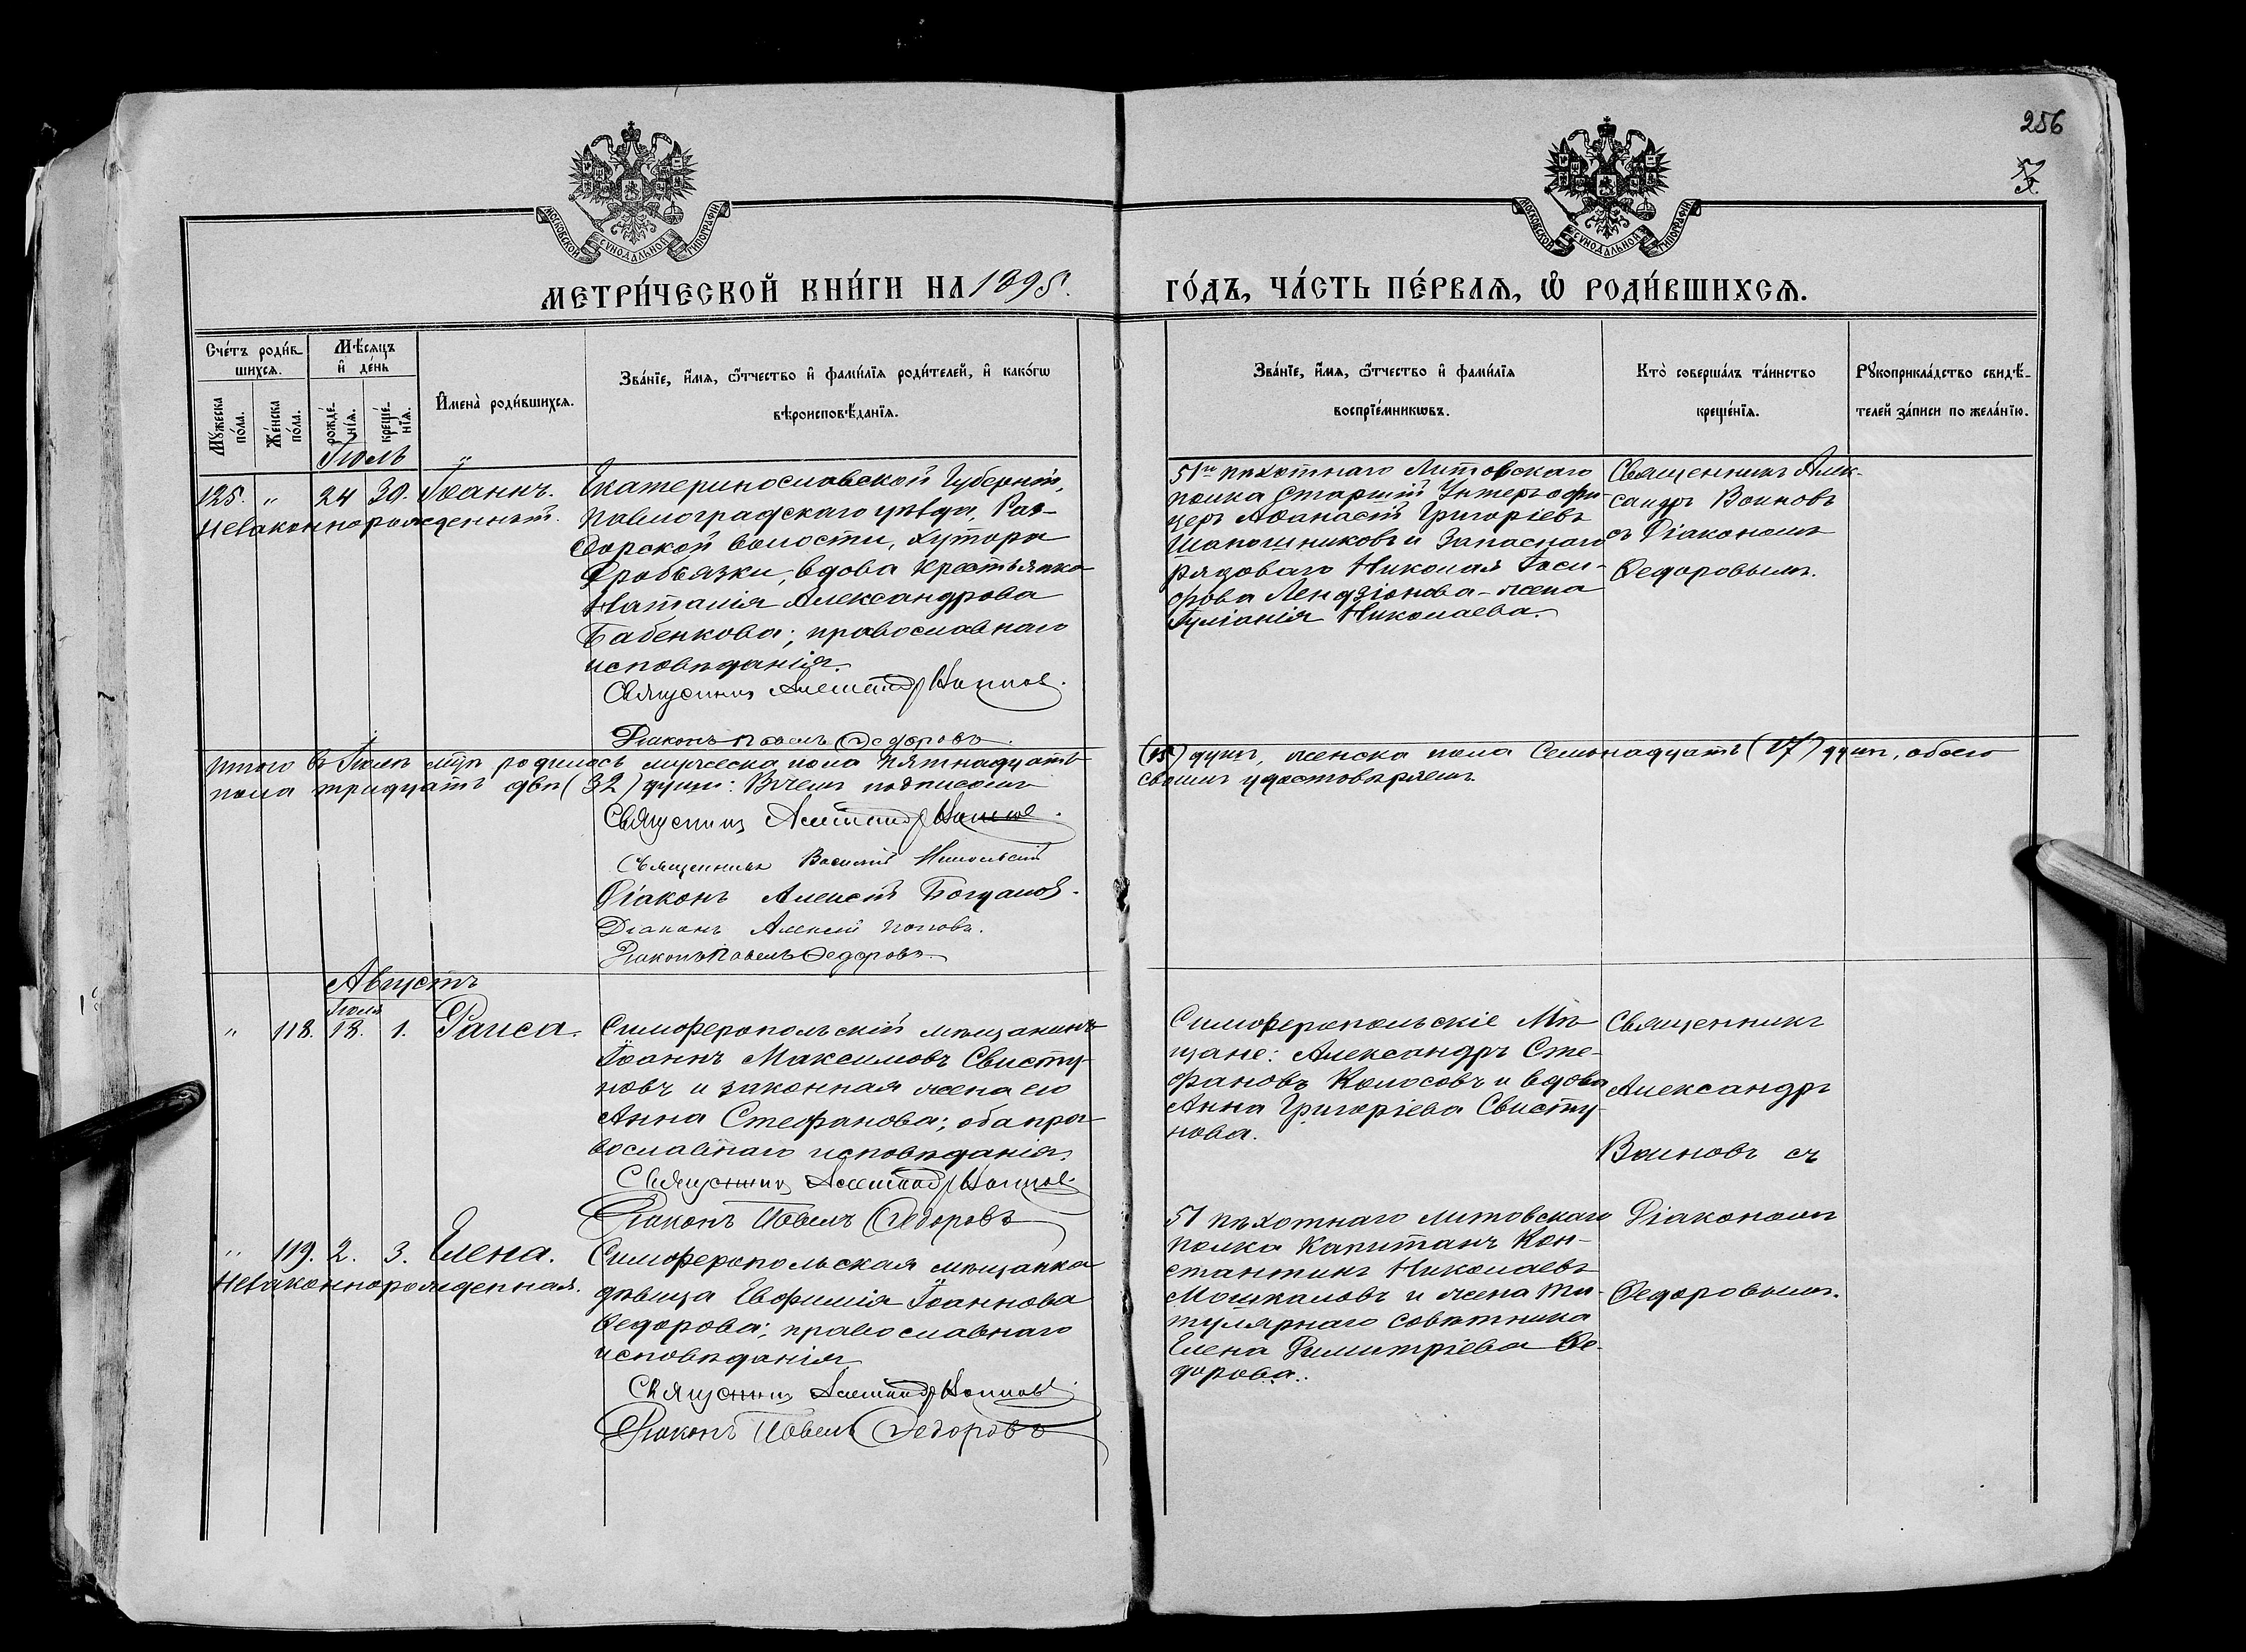 256
МОСКОВСКОЙ СѴНОДАЛЬНОЙ ТИПОГРАФІИ
МОСКОВСКОЙ СѴНОДАЛЬНОЙ ТИПОГРАФІИ
МЕТРИ́ЧЕСКОЙ КНИ́ГИ НА 1895.
ГО́ДЪ, ЧА́СТЬ ПЕ́РВАѦ, Ѡ҆ РОДИ́ВШИХСѦ.
Сче́тъ роди́вшихсѧ.
Мѣ́сѧцъ и҆ де́нь
Мꙋ́жеска по́ла.
Же́нска по́ла.
рожде́нїѧ.
креще́нїѧ.
И҆мена̀ роди́вшихсѧ.
Зва́нїе, и҆́мѧ, ѻ҆́тчество и҆ фами́лїѧ роди́телей, и҆ како́гѡ
вѣроисповѣ́данїѧ.
Зва́нїе, и҆́мѧ, ѻ҆́тчество и҆ фами́лїѧ
воспрїе́мникѡвъ.
Кто̀ соверша́лъ та́инство
креще́нїѧ.
Рꙋкоприкла́дство свидѣ́-
телей за́писи по жела́нїю.
Іюль
125. " 24 30. Іоаннъ.
Незаконнорожденный.
Екатеринославской Губерніи,
Павлоградскаго уѣзда, Раз-
дорской волости, хутора
вдова крестьянка
Наталія Александрова
Бабенкова; православнаго
исповѣданія.
Священникъ Александръ Воиновъ.
Діаконъ Павелъ Ѳедоровъ.
51го пѣхотнаго Литовскаго
полка Старшій Унтеръ офи-
церъ Аѳанасій Григоріевъ
Шапошниковъ и Запаснаго
рядоваго Николая Іоси-
фова жена
Іуліанія Николаева.
Священникъ Алек-
сандръ Воиновъ
съ Діакономъ
Ѳедоровымъ.
Итого въ Іюлѣ мцѣ родилось мужеска пола пятнадцать
(15) душъ, женска пола Семьнадцать (17) душъ, обоего
пола тридцать двѣ (32) души: Въ чемъ подписомъ
своимъ удостовѣряемъ.
Священникъ Александръ Воиновъ.
Священникъ Василій Никольскій
Діаконъ Алексій Богданов.
Діаконъ Алексій Поповъ.
Діаконъ Павелъ Ѳедоровъ.
Августъ
Іюля
" 118. 18. 1. Раиса.
Симферопольскій мѣщанинъ
Іоаннъ Максимовъ Свисту-
новъ и законная жена его
Анна Стефанова; оба пра-
вославнаго исповѣданія.
Священникъ Александръ Воиновъ
Діаконъ Павелъ Ѳедоровъ
Симферопольскіе Мѣ-
щане: Александръ Сте-
фановъ Колосовъ и вдова
Анна Григоріева Свисту-
нова.
Священникъ
Александръ
Воиновъ съ
Діакономъ
Ѳедоровымъ.
" 119. 2. 3. Елена.
Незаконнорожденная.
Симферопольская мѣщанка
дѣвица Евфимія Іоаннова
Ѳедорова; православнаго
исповѣданія.
Священникъ Александръ Воиновъ
Діаконъ Павелъ Ѳедоровъ
51 пѣхотнаго литовскаго
полка Капитанъ Кон-
стантинъ Николаевъ
Мошкаловъ и жена Ти-
тулярнаго совѣтника
Елена Димитріева Ѳе-
дорова.